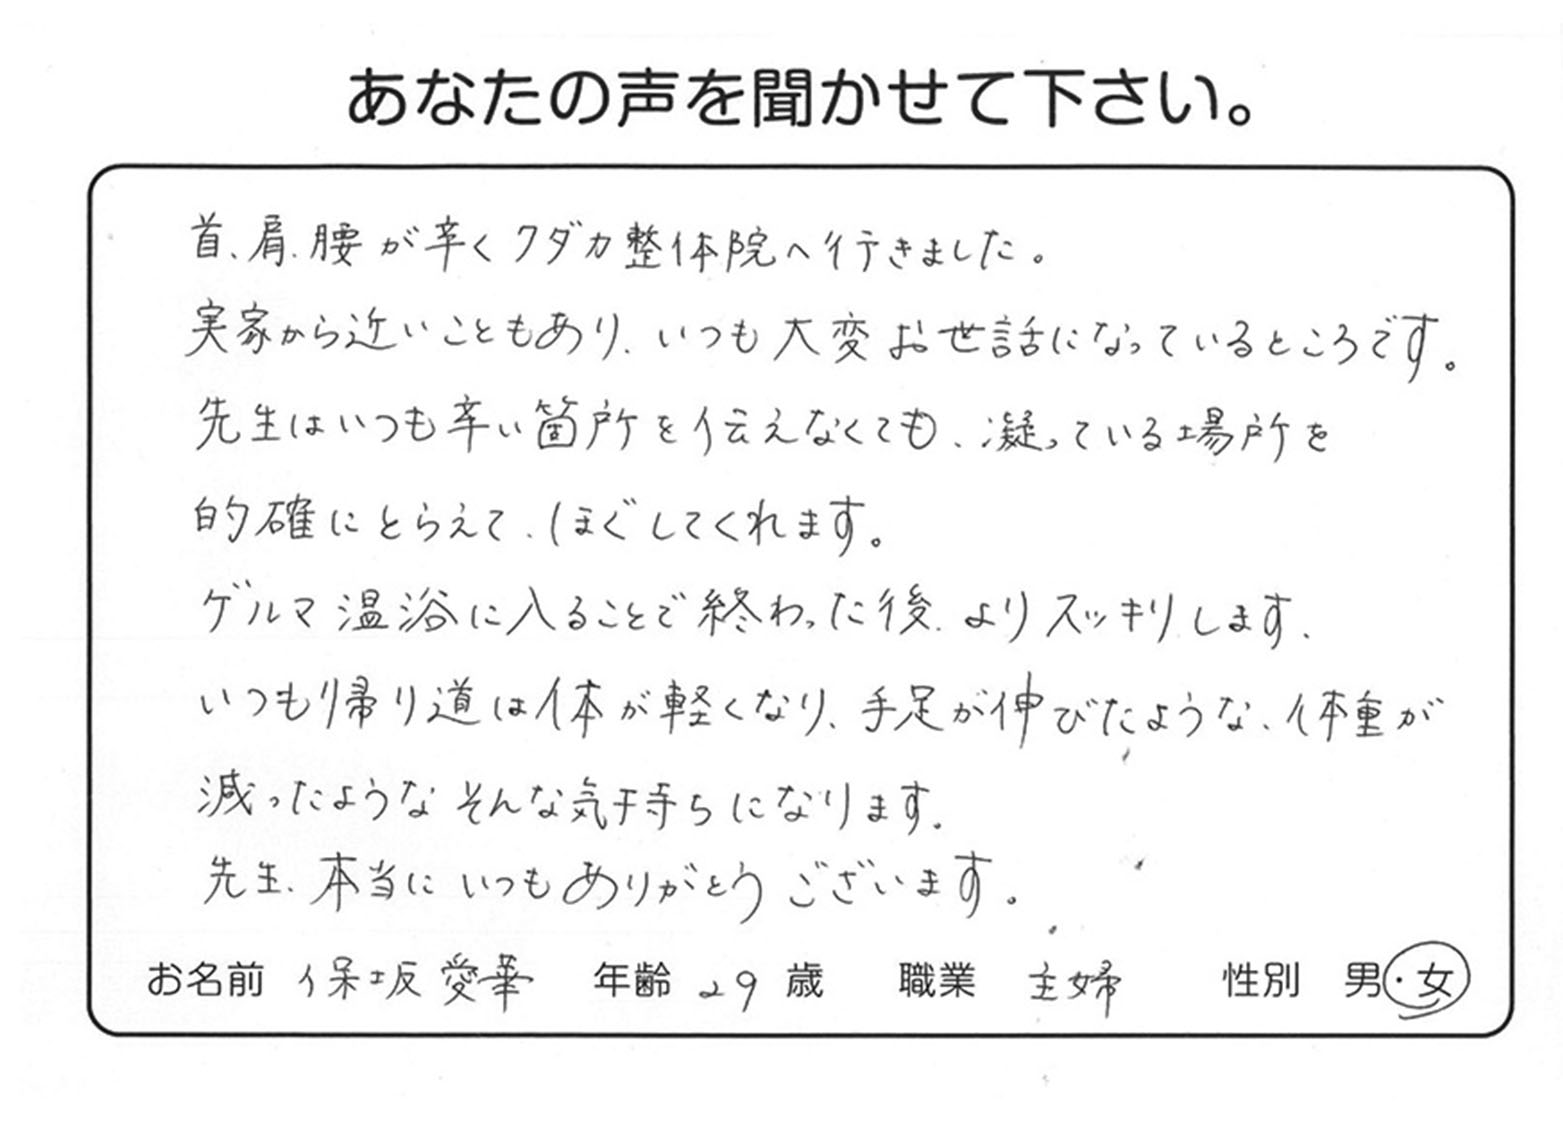 あなたの声を聞かせて下さい。
首、肩、腰が辛くクダカ整体院へ行きました。
実家から近いこともあり、いつも大変お世話になっているところです。
先生はいつも辛い箇所を伝えなくても、凝っている場所を
的確にとらえて、ほぐしてくれます。
ゲルマ温浴に入ることで終わった後、よりスッキリします、
いつも帰り道は体が軽くなり、手足が伸びたような、体重が
減ったようなそんな気持ちになります。
先生、本当にいつもありがとうございます。
お名前 保坂愛華 年齢 29 歳 職業 主婦 性別 男・女